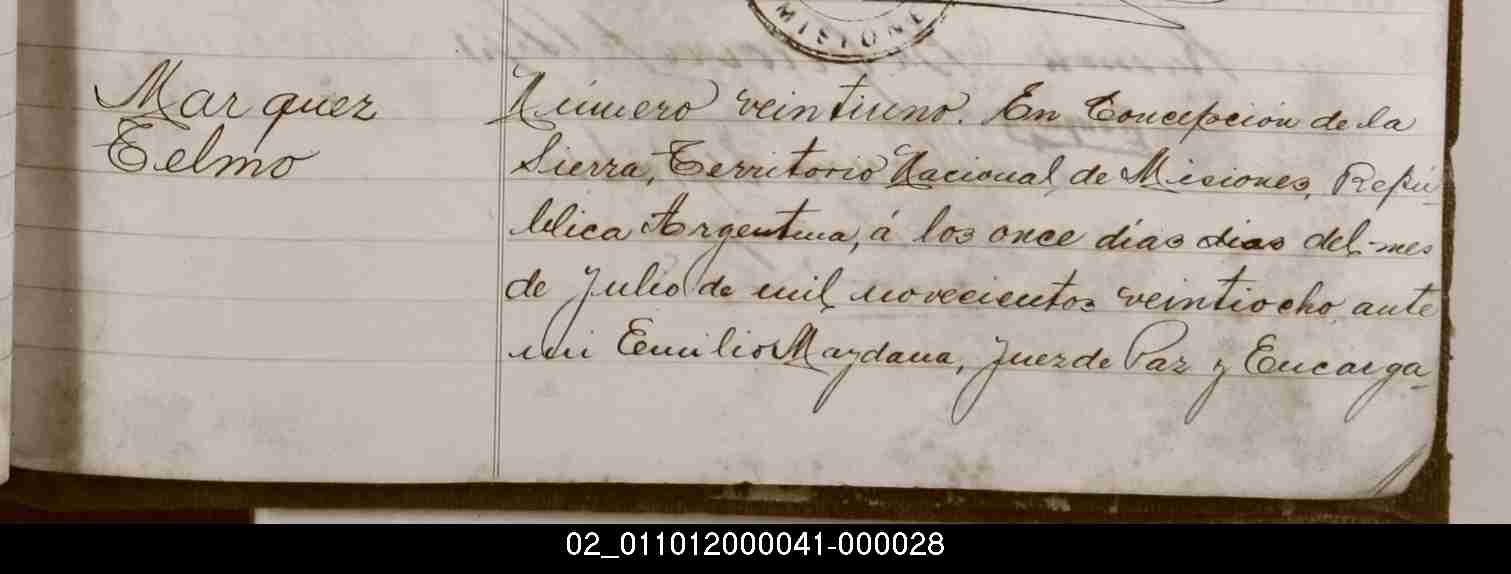 MISIONE
Marquez
Telmo
Número veintiuno. En Concepción de la
Sierra, Territorio Nacional de Misiones, Repú-
blica Argentina, á los once días dias del mes
de Julio de mil novecientos veintiocho ante
mi Emilio Maydana, Juez de Paz y Encarga-
02_011012000041-000028